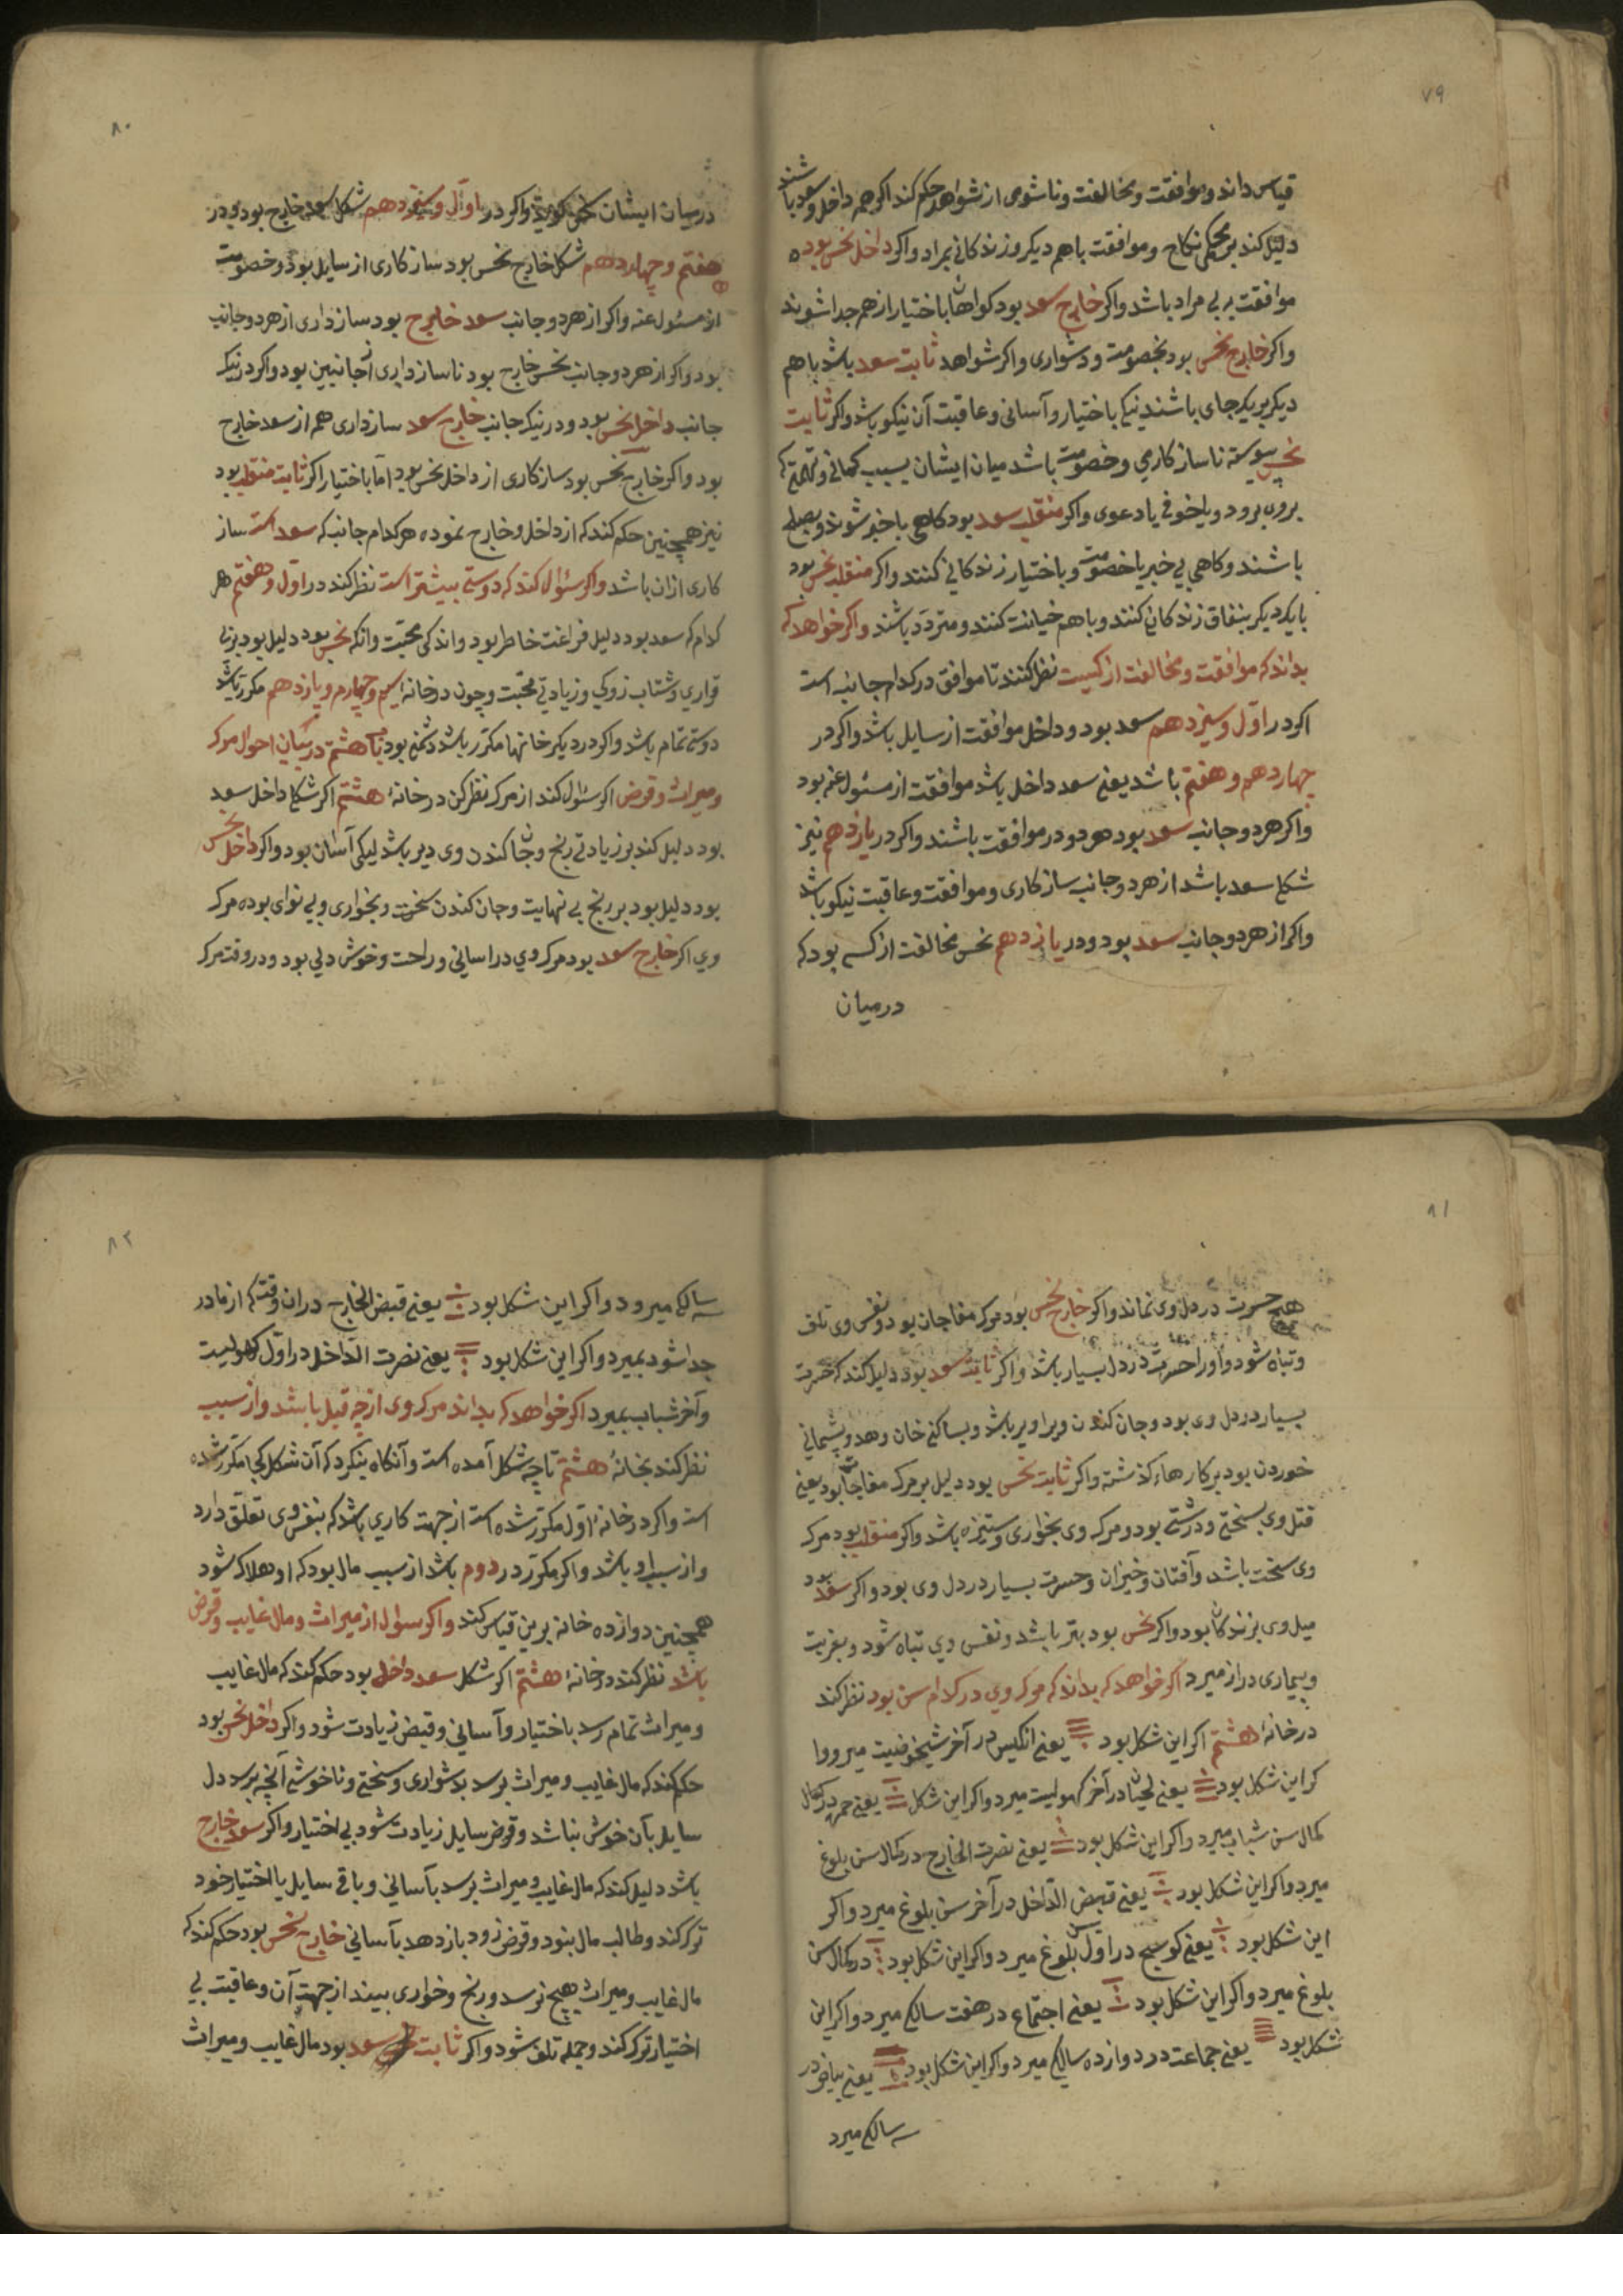 ۷۹
قیاس داند و موافقت و مخالفت و ناشوی از شواهد حکم کند اکر جمه داخل و سعود باشند
دلیل کند بر محکمی نکاح و موافقت باهم دیکر و زندکانی بمراد و اکر داخل نحس بود
موافقت بر بی مراد باشد و اکر خارج سعد بود کواهان باختیار از هم جدا شوند
و اکر خارج نحس بود بخصومت و دشواری و اکر شواهد ثابت سعد باشد باهم
دیکر بر یکجای باشند نیکی باختیار و آسانی و عاقبت آن نیکو باشد و اکر ثابت
نحس پیوسته ناسازکاری و خصومت باشد میان ایشان بسبب کمانی و تهمتی که
برون برود و یا خوفی یا دعوی و اکر منقلب سعد بود کاهی باخبر شوند و بصلح
باشند و کاهی بی خبر یا خصومت و باختیار زندکانی کنند و اکر منقلب نحس بود
بایکدیکر بنفاق زندکانی کنند و باهم خیانت کنند و متردد باشند و اکر خواهد که
بداند که موافقت و مخالفت از کیست نظر کنند تا موافق در کدام جانب است
اکر در اوّل و سیزدهم سعد بود و داخل موافقت از سایل باشد و اکر در
چهاردهم و هفتم باشد یعنی سعد داخل باشد موافقت از مسئول عنه بود
و اکر هر دو جانب سعد بود هر دو در موافقت باشند و اکر در یازدهم نیز
شکل سعد باشد از هر دو جانب سازکاری و موافقت و عاقبت نیکو باشد
و اکر از هر دو جانب سعد بود و در یازدهم نحس مخالفت از کسی بود که
درمیان
۸۰
درمیان ایشان سخن کوید و اکر در اوّل و سیزدهم شکل سعد خارج بود و در
هفتم و چهاردهم شکل خارج نحس بود سازکاری از سایل بود و خصومت
از مسئول عنه و اکر از هر دو جانب سعد خارج بود سازداری از هر دو جانب
بود و اکر از هر دو جانب نحس خارج بود ناسازداری از جانبین بود و اکر در یک
جانب داخل نحس بود و در یک جانب خارج سعد سازداری هم از سعد خارج
بود و اکر خارج نحس بود سازکاری از داخل نحس بود اما باختیار اکر ثابت منقلب بود
نیز همچنین حکم کند که از داخل و خارج نموده هر کدام جانب که سعد است ساز
کاری ازان باشد و اکر سئوال کند که دوستی بیشتر است نظر کند در اوّل و هفتم هر
کدام که سعد بود دلیل فراغت خاطر بود و اندکی محبّت و انکه نحس بود دلیل بود بر بی
قراری و شتاب زدکی و زیادتی محبّت و چون در خانه سیم و چهارم و یازدهم مکرر باشد
دوستی تمام باشد و اکر در دیکر خانها مکرر باشد دشمنی بود باب هشتم در بیان احوال مرک
و میراث و قرض اکر سئوال کند از مرک نظر کن در خانهٔ هشتم اکر شکل داخل سعد
بود دلیل کند بر زیادتی رنج و جان کندن وی دیر باشد لیکن آسان بود و اکر داخل نحس
بود دلیل بود بر رنج بی نهایت و جان کندن سخت و بخواری و بی نوای بوده مرک
وی اکر خارج سعد بود مرک وی در اسانی و راحت و خوش دلی بود و در وقت مرک
۸۱
هیچ حسرت در دل وی نماند و اکر خارج نحس بود مرک مفاجان بود و نفس وی تلف
و تباه شود و او را حسرت در دل بسیار باشد و اکر ثابت سعد بود دلیل کند که حسرت
بسیار در دل وی بود و جان کندن ویرا دیر باشد و بسا کنج خان وهد و پشیمانی
خوردن بود بر کارهاء کذشته و اکر ثابت نحس بود دلیل بر مرک مفاجا بود یعنی
قتل وی بسختی و درشتی بود و مرک وی بخواری و ستیزه باشد و اکر منقلب بود مرک
وی سخت باشد و آفتان و خیزان و حسرت بسیار در دل وی بود و اکر سعد بود
میل وی بزندکانی بود و اکر نحس بود بتر باشد و نفس وی تباه شود و بغربت
و بیماری دراز میرد اکر خواهد که بداند که مرک وی در کدام سن بود نظر کند
در خانهٔ هشتم اکر این شکل بود یعنی انکیس در آخر شیخوخیت میرد و ا
کر این شکل بود یعنی لحیان در آخر کهولیت میرد و اکر این شکل یعنی حمره در کمال
کمال سن شباب میرد و اکر این شکل بود یعنی نصرت الخارج در کمال سن بلوغ
میرد و اکر این شکل بود یعنی قبض الدّاخل در آخر سن بلوغ میرد و اکر
این شکل بود یعنی کوسج در اوّل سن بلوغ میرد و اکر این شکل بود در کمال سن
بلوغ میرد و اکر این شکل بود یعنی اجتماع در هفت سالکی میرد و اکر این
شکل بود یعنی جماعت در دوازده سالکی میرد و اکر این شکل بود یعنی بیاض در
سه سالکی میرد
۸۲
سه سالکی میرود و اکر این شکل بود یعنی قبض الخارج دران وقت که از مادر
جدا شود بمیرد و اکر این شکل بود یعنی نصرت الدّاخل در اوّل کهولیت
و آخر شباب بمیرد اکر خواهد که بداند مرک وی از چه قبل باشد و از سبب
نظر کند بخانهٔ هشتم تا چه شکل آمده است و آنکاه بنکرد که آن شکل کجا مکرر شده
است و اکر در خانهٔ اوّل مکرر شده است از جهت کاری باشد که بنفس وی تعلّق دارد
و از سبب او باشد و اکر مکرّر در دوم باشد از سبب مال بود که او هلاک شود
همچنین دوازده خانه برین قیاس کند و اکر سوال از میراث و مال غایب و قرض
باشد نظر کند در خانهٔ هشتم اکر شکل سعد داخل بود حکم کند که مال غایب
و میراث تمام رسد باختیار و آسانی و قبض زیادت شود و اکر داخل نحس بود
حکم کند که مال غایب و میراث برسد بدشواری و سختی و ناخوشی آنچه برسد دل
سایل بآن خوش نباشد و قرض سایل زیادت شود بی اختیار و اکر سعد خارج
باشد دلیل کند که مال غایب و میراث برسد بآسانی و باقی سایل با اختیار خود
ترک کند و طالب مال بنود و قرض زود باز دهد بآسانی خارج نحس بود حکم کند که
مال غایب و میراث هیچ نرسد و رنج و خواری بیند از جهت آن و عاقبت بی
اختیار ترک کند و جمله تلف شود و اکر ثابت سعد بود مال غایب و میراث